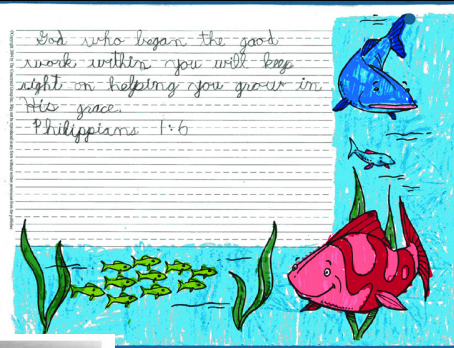 God who began the good
work within you will keep
right on helping you grow in
His grace.
Philippians 1:6